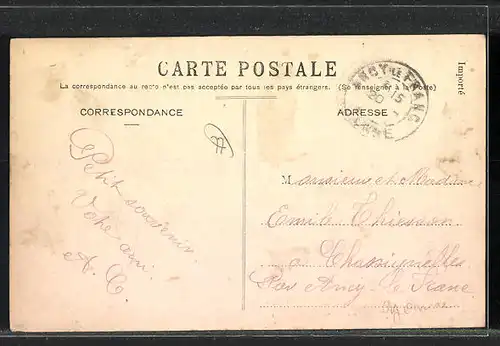 CARTE POSTALE
La correspondance au recto n'est pas acceptée par tous les pays étrangers. (Se renseigner à la Poste)
CORRESPONDANCE
ADRESSE
Importé
ANCY LE FRANC
20
15
YONNE
Petit souvenir
Votre ami
A. C.
Monsieur et Madame
Emile
à Chassignelles
Par Ancy-le-Franc